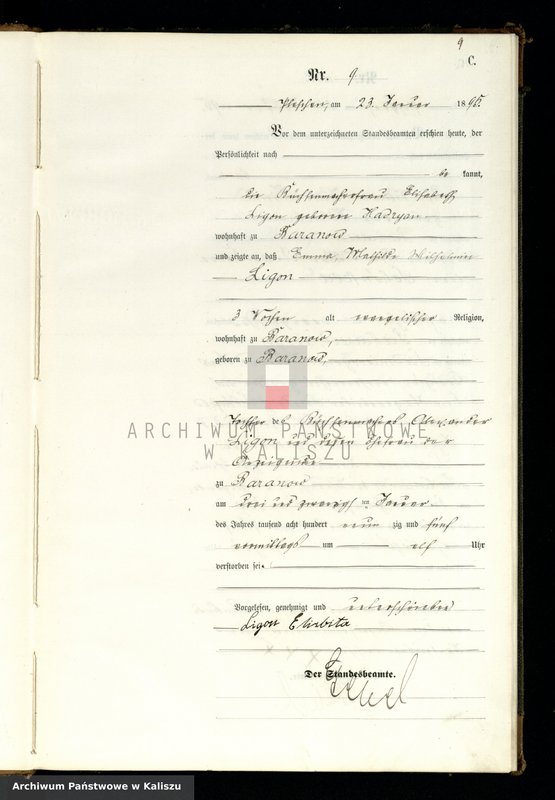 9
C.
Nr. 9
Pleschen, am 23. Januar 1895
Vor dem unterzeichneten Standesbeamten erschien heute, der
Persönlichkeit nach
be kannt,
die Büchsenmacherfrau Elisabeth
Ligon geborene Hadryan
wohnhaft zu Baranow
und zeigte an, daß Emma Mathilde Wilhelmine
Ligon
3 Wochen alt evangelischer Religion,
wohnhaft zu Baranow,
geboren zu Baranow,
Tochter des Büchsenmachers Alexander
Ligon und dessen Ehefrau der
Anzeigende
zu Baranow
am drei und zwanzigsten Januar
des Jahres tausend acht hundert neun zig und fünf
vormittags um elf Uhr
verstorben sei.
Vorgelesen, genehmigt und unterschrieben
Ligon Elzbita
Der Standesbeamte.
ARCHIWUM PAŃSTWOWE
W KALISZU
Archiwum Państwowe w Kaliszu